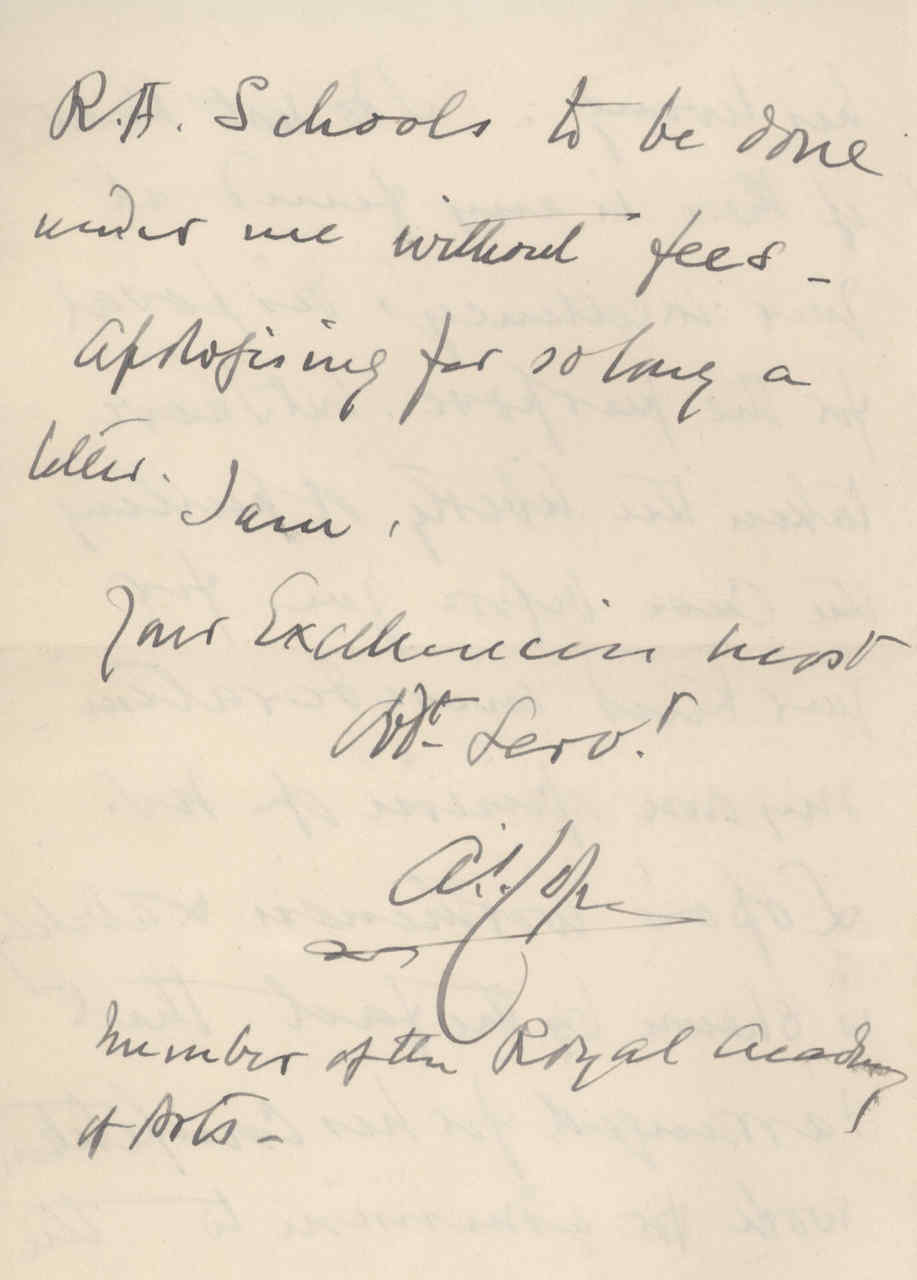 R.A. Schools to be done
under me without fees -
Apologising for so long a
letter.
I am,
Your Excellencies most
Obt. Servt.
Member of the Royal Academy
of Arts -